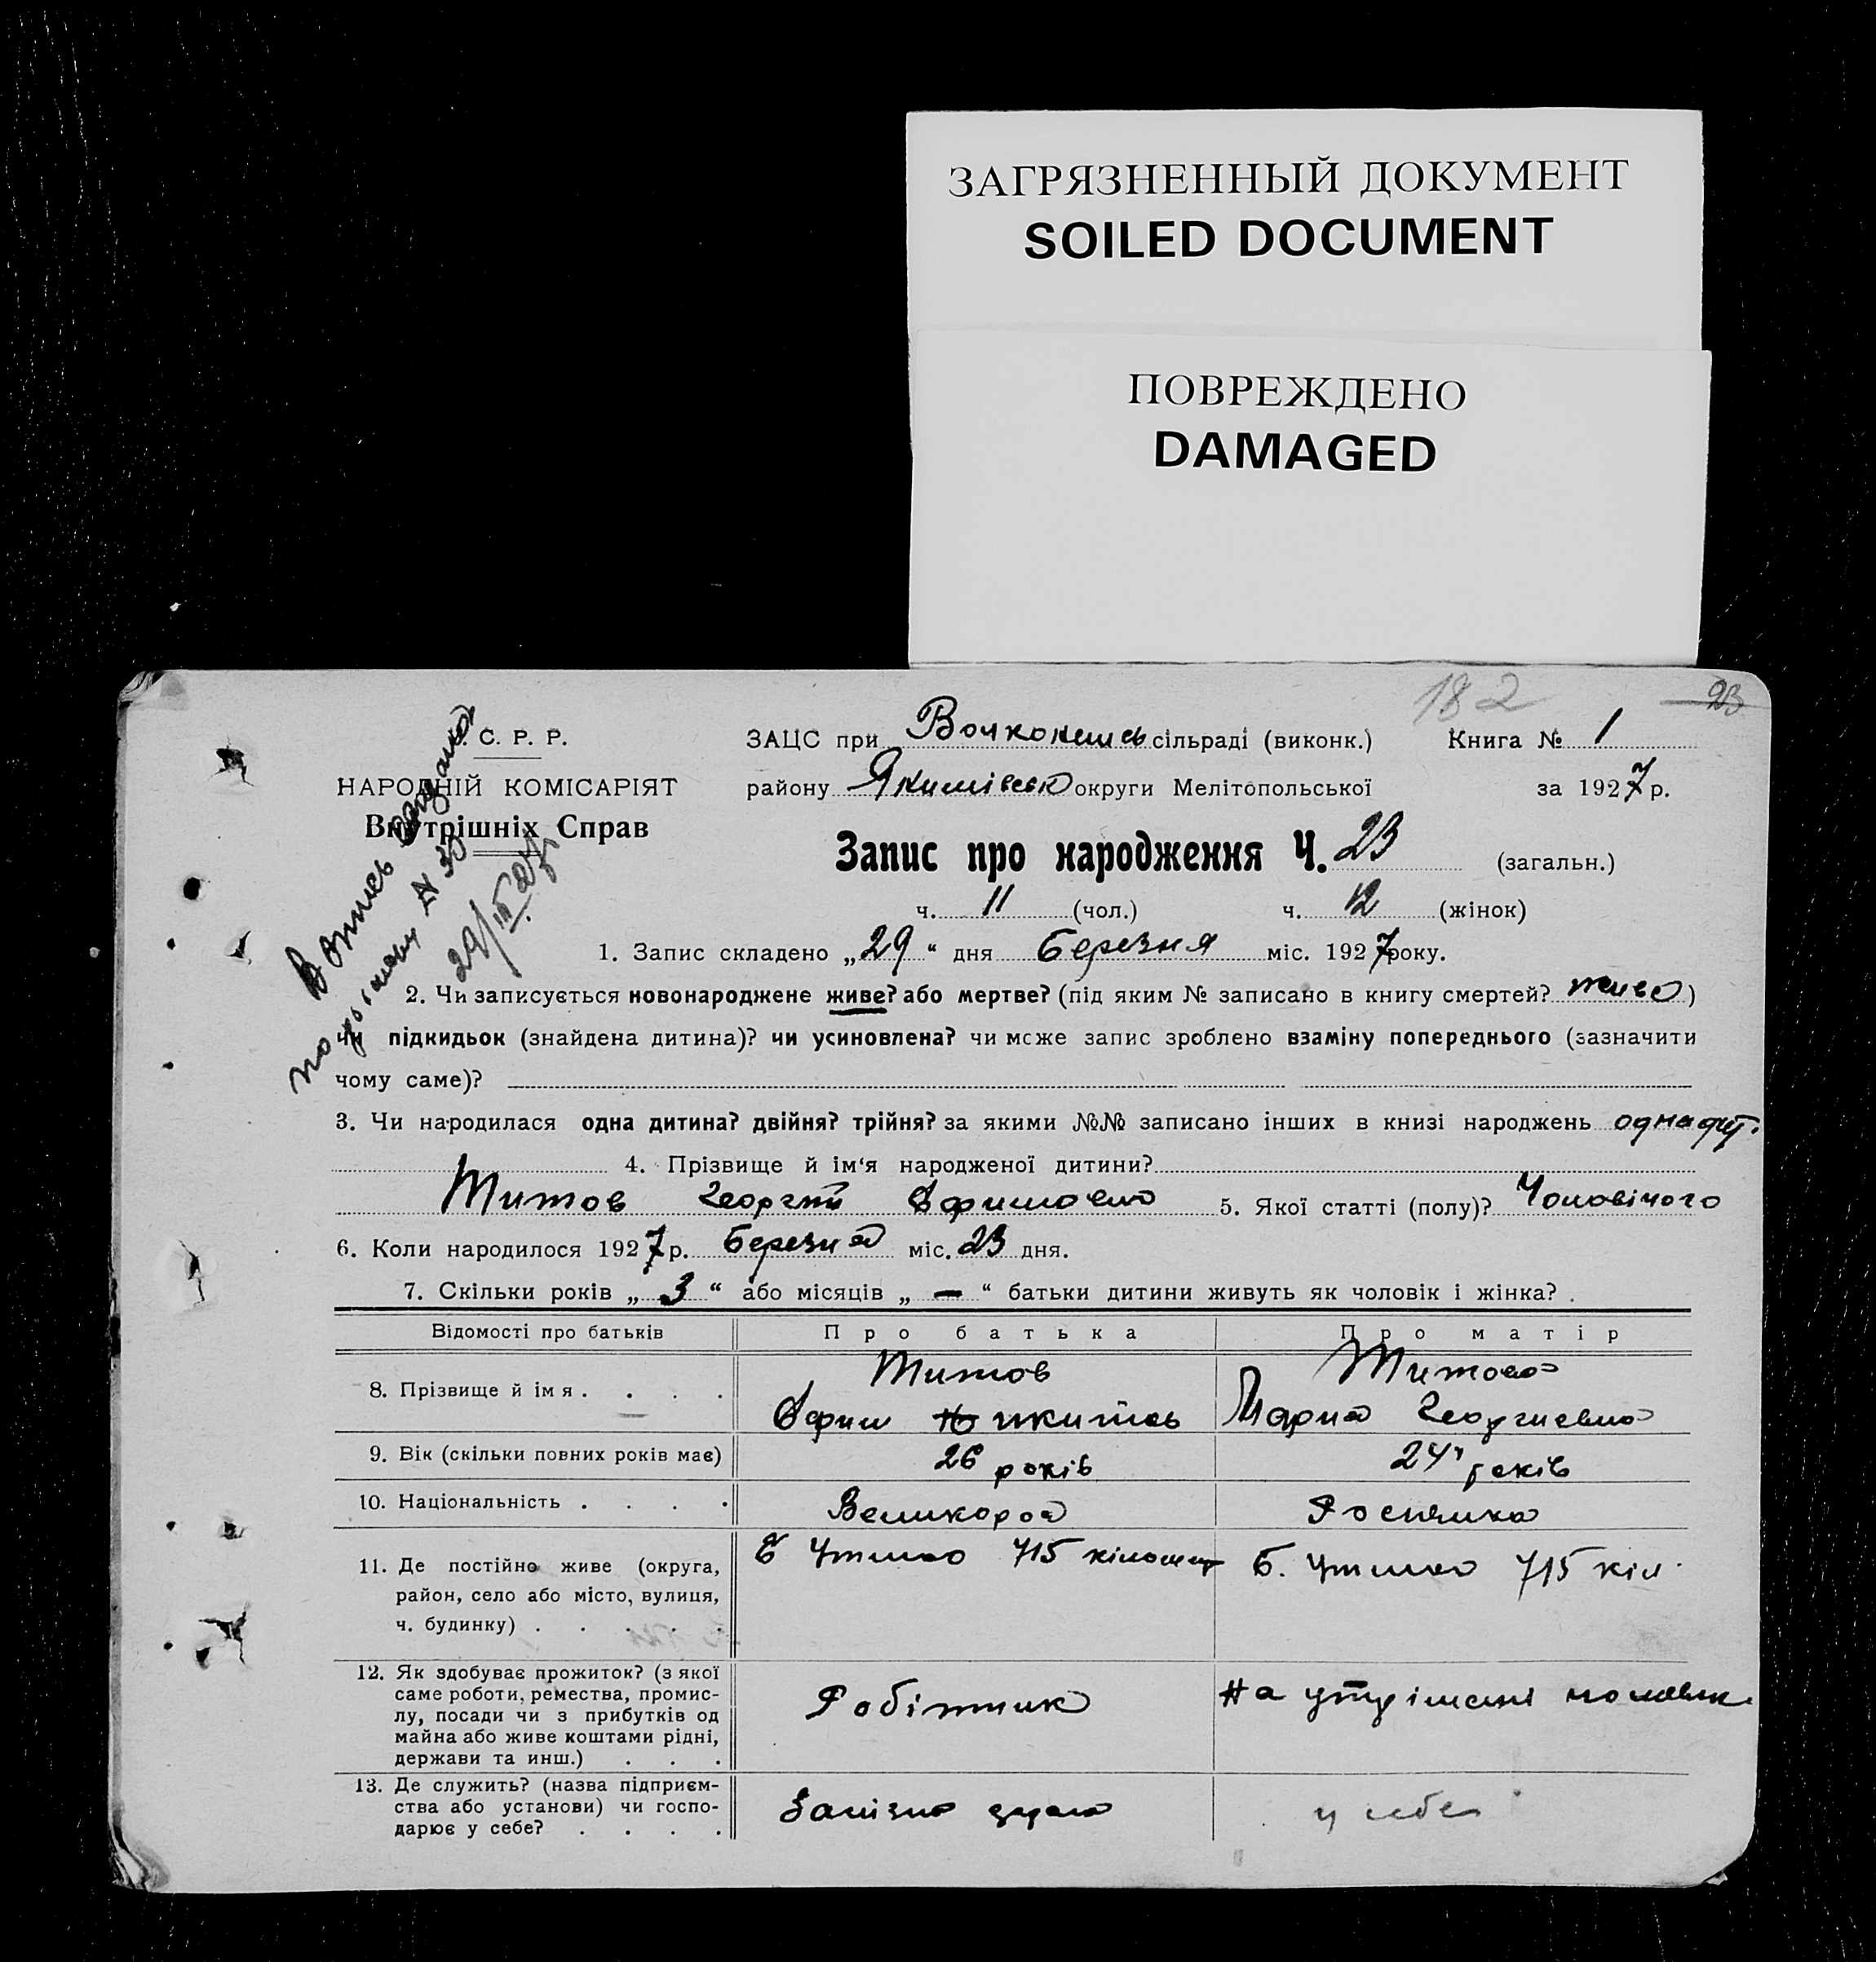 ЗАГРЯЗНЕННЫЙ ДОКУМЕНТ
SOILED DOCUMENT
ПОВРЕЖДЕНО
DAMAGED
182 23
С. Р. Р.
НАРОДНІЙ КОМІСАРІЯТ
Внутрішніх Справ
Вопись
29/III 27
ЗАЦС при сільраді (виконк.) Книга № 1
району Якимівськ округи Мелітопольської за 1927 р.
Запис про народження Ч. 23 (загальн.)
ч. 11 (чол.) ч. 12 (жінок)
1. Запис складено „29“ дня Березня міс. 1927 року.
2. Чи записується новонароджене живе? або мертве? (під яким № записано в книгу смертей? живе)
чи підкидьок (знайдена дитина)? чи усиновлена? чи може запис зроблено взаміну попереднього (зазначити
чому саме)?
3. Чи народилася одна дитина? двійня? трійня? за якими №№ записано інших в книзі народжень одна дит.
4. Прізвище й ім‘я народженої дитини?
Титов Георгій 5. Якої статті (полу)? Чоловічого
6. Коли народилося 1927 р. Березня міс. 23 дня.
7. Скільки років „3“ або місяців „—“ батьки дитини живуть як чоловік і жінка?
Відомості про батьків Про батька Про матір
8. Прізвище й імя . . . . Титов Титова
Ефим Никитов Мария Георгиевна
9. Вік (скільки повних років має) 26 років 24 років
10. Національність . . . . Великорос Росіянка
11. Де постійно живе (округа, Б. Утлюг 715 кіломет Б. Утлюг 715 кіл.
район, село або місто, вулиця,
ч. будинку) . . . . .
12. Як здобуває прожиток? (з якої
саме роботи, ремества, промис-
лу, посади чи з прибутків од Робітник На утрімані чоловік
майна або живе коштами рідні,
держави та инш.) . . .
13. Де служить? (назва підприєм-
ства або установи) чи госпо- Залізна дорога у себе
дарює у себе? . . . .